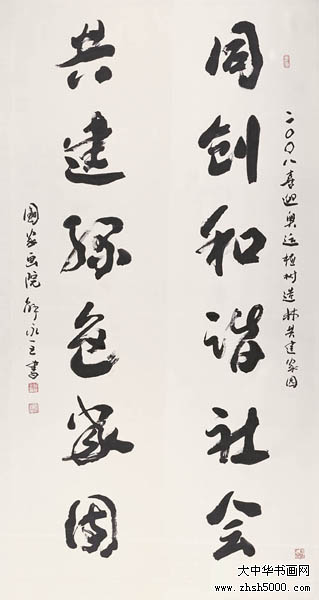 二〇〇八喜迎奥运植树造林共建家园
同创和谐社会
共建绿色家园
國家画院 永 書
大中华书画网
www.zhsh5000.com